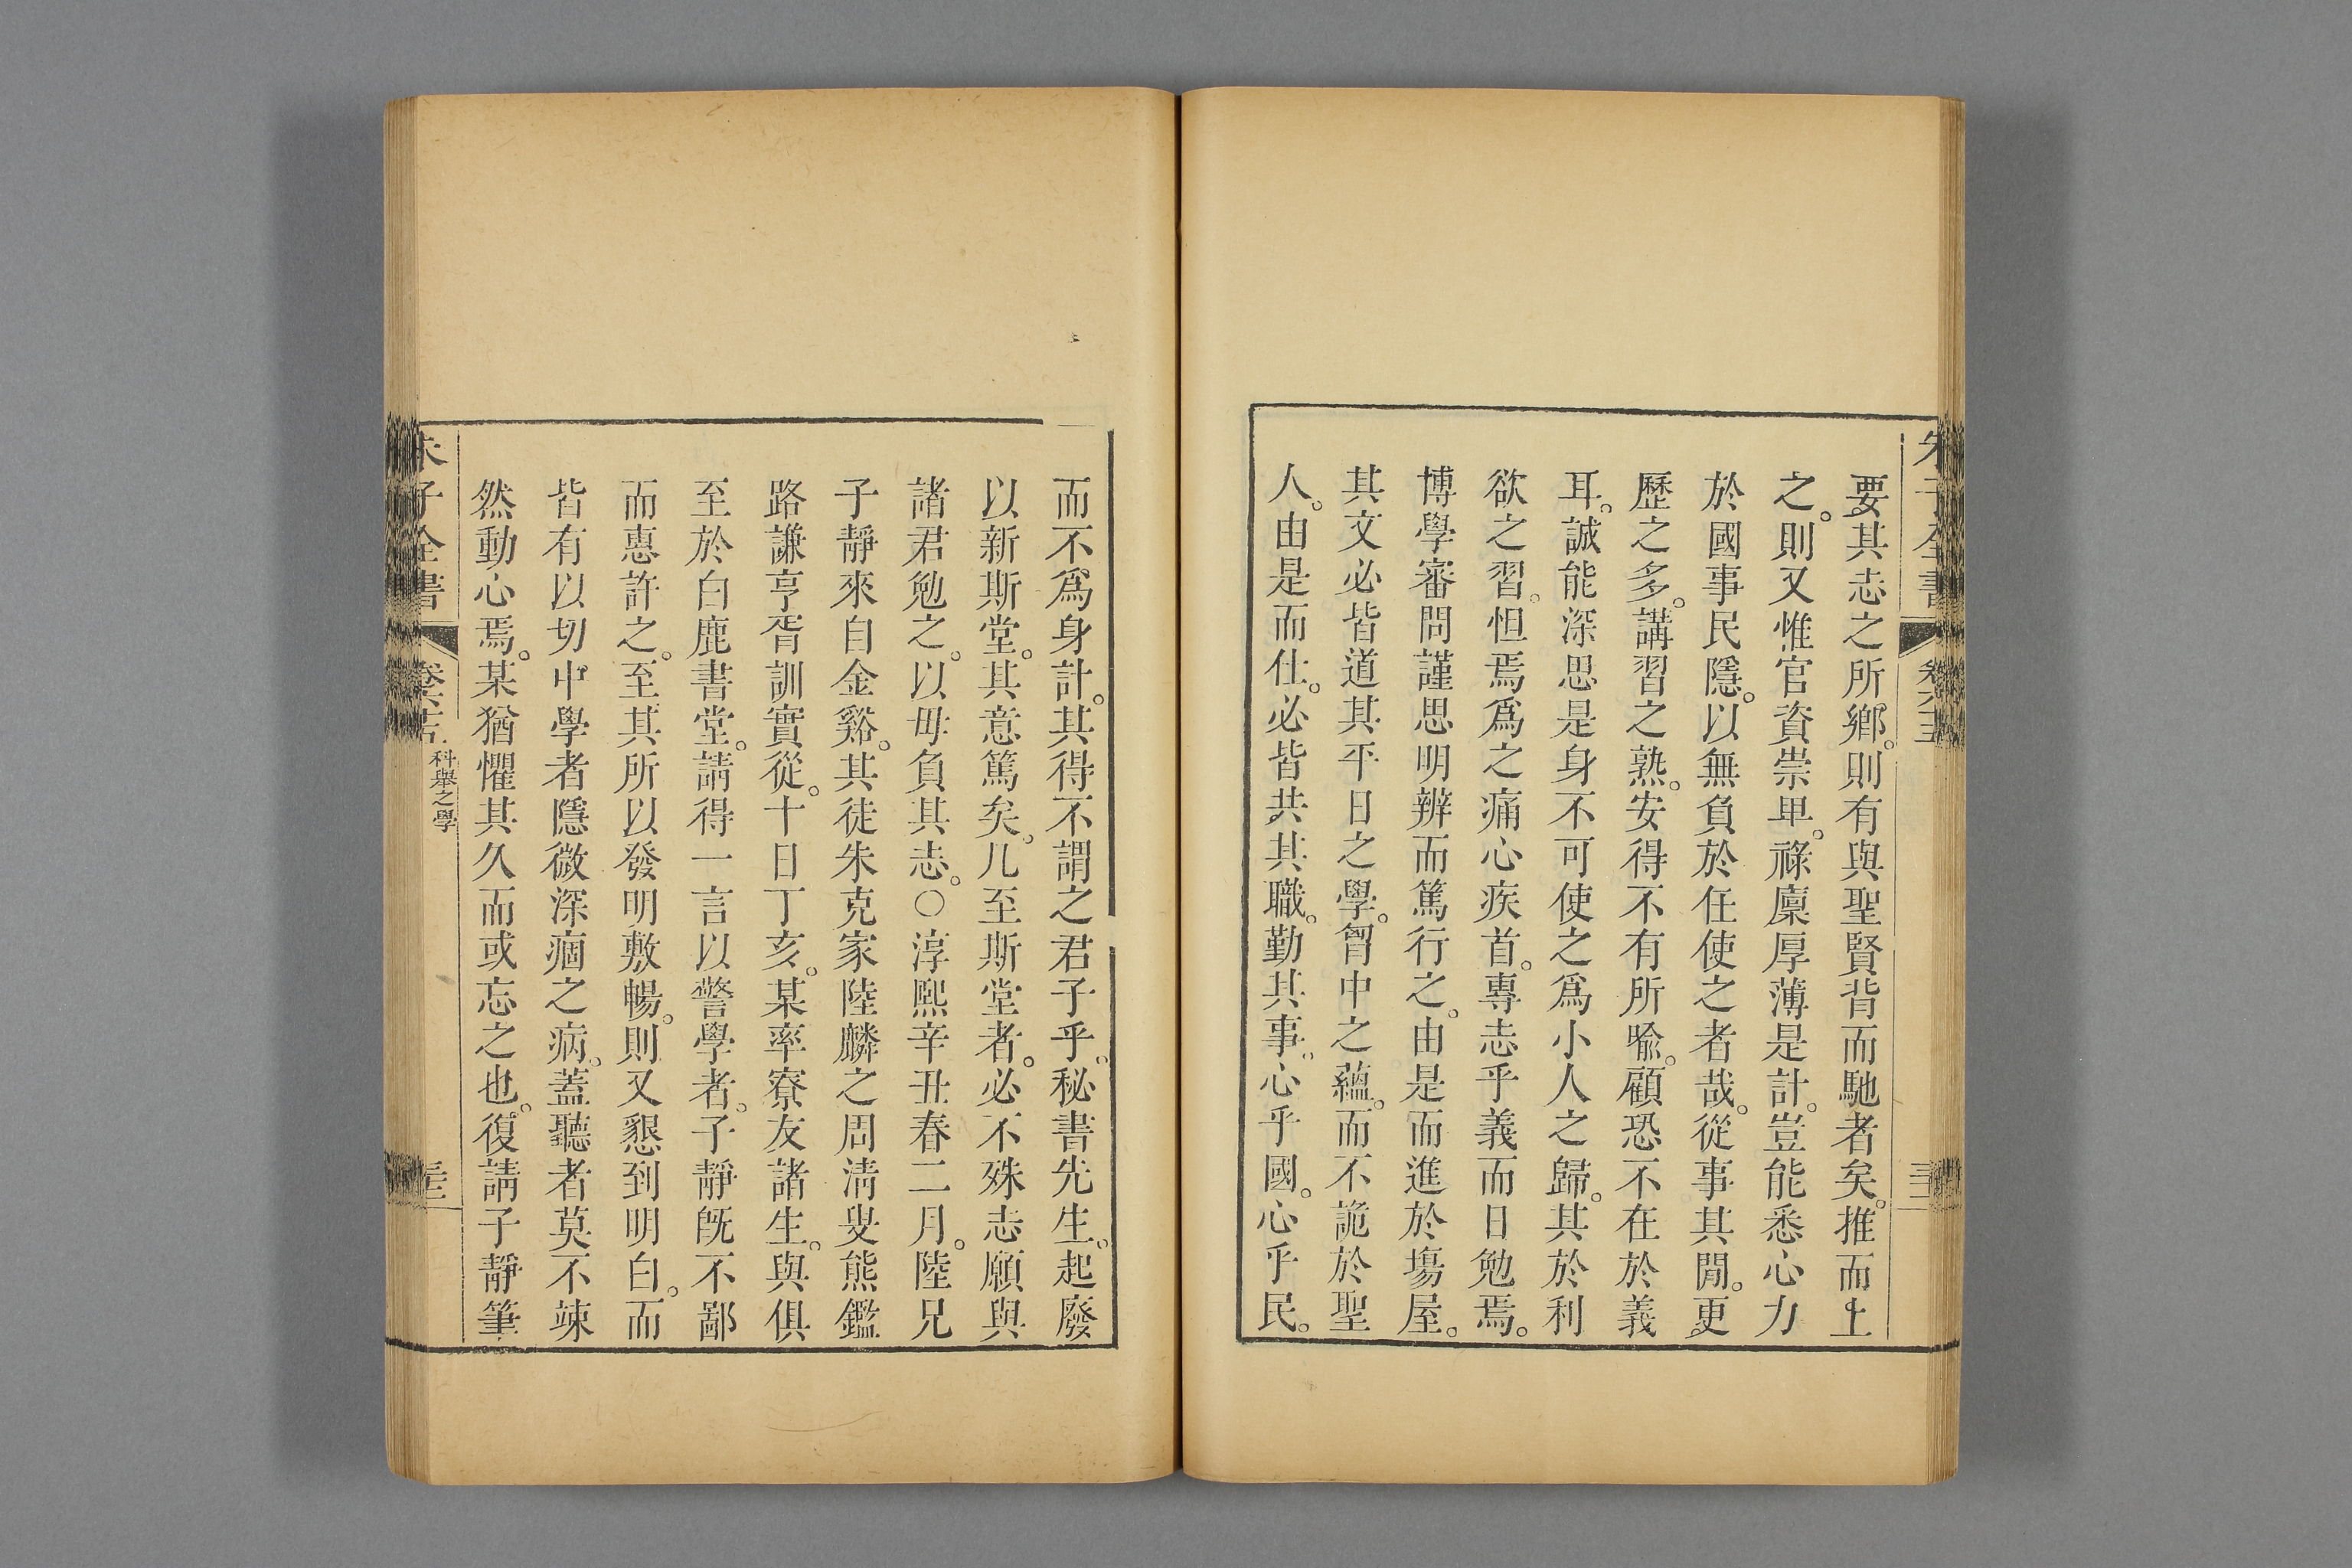 要其志之所鄉。則有與聖賢背而馳者矣。推而上
之。則又惟官資崇卑。祿廩厚薄是計。豈能悉心力
於國事民隱。以無負於任使之者哉。從事其閒。更
歷之多。講習之熟。安得不有所喩。顧恐不在於義
耳。誠能深思是身不可使之爲小人之歸。其於利
欲之習。怛焉爲之痛心疾首。專志乎義而日勉焉。
博學審問謹思明辨而篤行之。由是而進於塲屋。
其文必皆道其平日之學。胷中之蘊。而不詭於聖
人。由是而仕。必皆共其職。勤其事。心乎國。心乎民。
而不爲身計。其得不謂之君子乎。秘書先生。起廢
以新斯堂。其意篤矣。凡至斯堂者。必不殊志。願與
諸君勉之。以毋負其志。○淳熙辛丑春二月。陸兄
子靜來自金谿。其徒朱克家陸麟之周淸叟熊鑑
路謙亨胥訓實從。十日丁亥。某率寮友諸生。與俱
至於白鹿書堂。請得一言以警學者。子靜旣不鄙
而惠許之。至其所以發明敷暢。則又懇到明白。而
皆有以切中學者隱微深痼之病。蓋聽者莫不竦
然動心焉。某猶懼其久而或忘之也。復請子靜筆
朱子全書
科舉之學